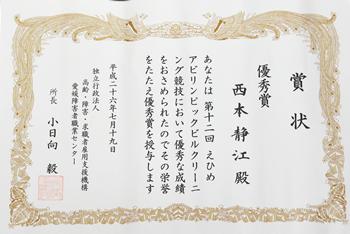 賞状
優秀賞
西本静江殿
あなたは 第十二回 えひめ
アビリンピックビルクリーニ
ング競技において優秀な成績
をおさめられたのでその栄誉
をたたえ優秀賞を授与します
平成二十六年七月十九日
独立行政法人
高齢・障害・求職者雇用支援機構
愛媛障害者職業センター
所長 小日向 毅